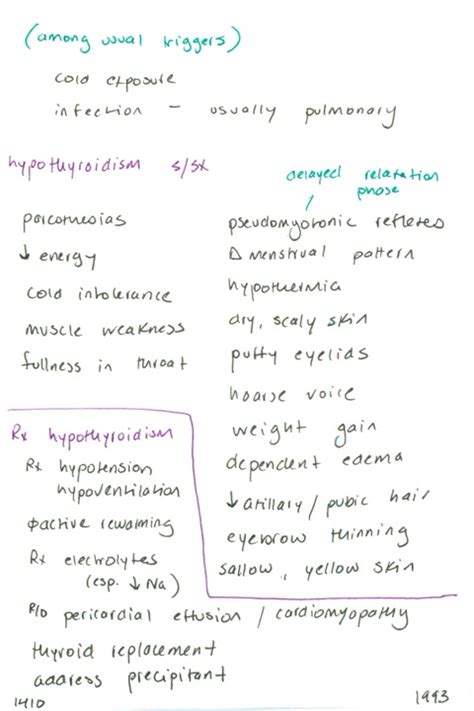 (among usual triggers)
cold exposure
infection - usually pulmonary
hypothyroidism s/sx
paresthesias
↓ energy
cold intolerance
muscle weakness
fullness in throat
delayed relaxation
phase
pseudomyotonic reflexes
Δ menstrual pattern
hypothermia
dry, scaly skin
puffy eyelids
hoarse voice
weight gain
dependent edema
↓ axillary / pubic hair
eyebrow thinning
sallow, yellow skin
Rx hypothyroidism
Rx hypotension
hypoventilation
φactive rewarming
Rx electrolytes
(esp. ↓ Na)
R/O pericardial effusion / cardiomyopathy
thyroid replacement
address precipitant
1410
1993